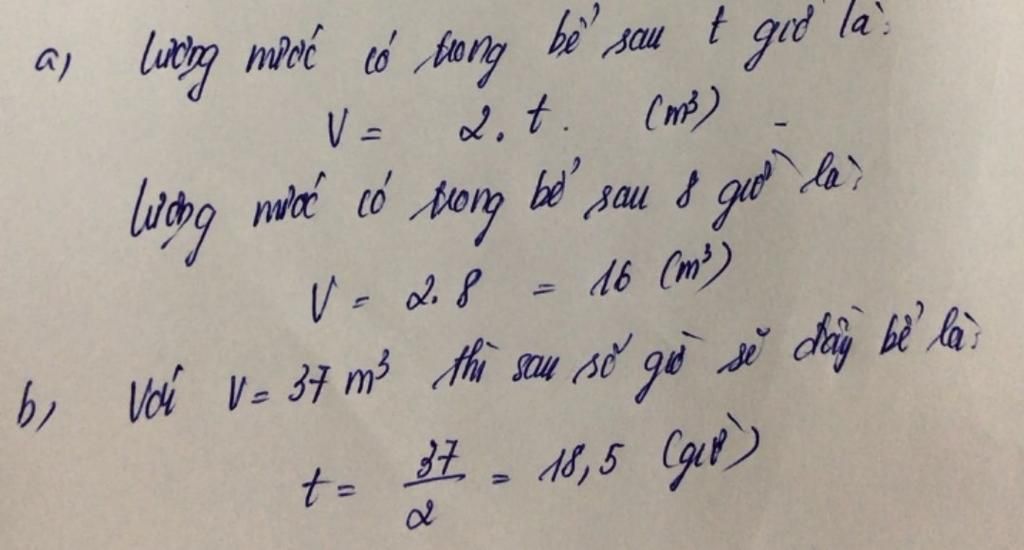 a, lượng nước có trong bể sau t giờ là:
V = 2. t. (m³)
lượng nước có trong bể sau 8 giờ là:
V = 2. 8 = 16 (m³)
b, Với V = 37 m³ thì sau số giờ sẽ đầy bể là:
t = 37/2 = 18,5 (giờ)